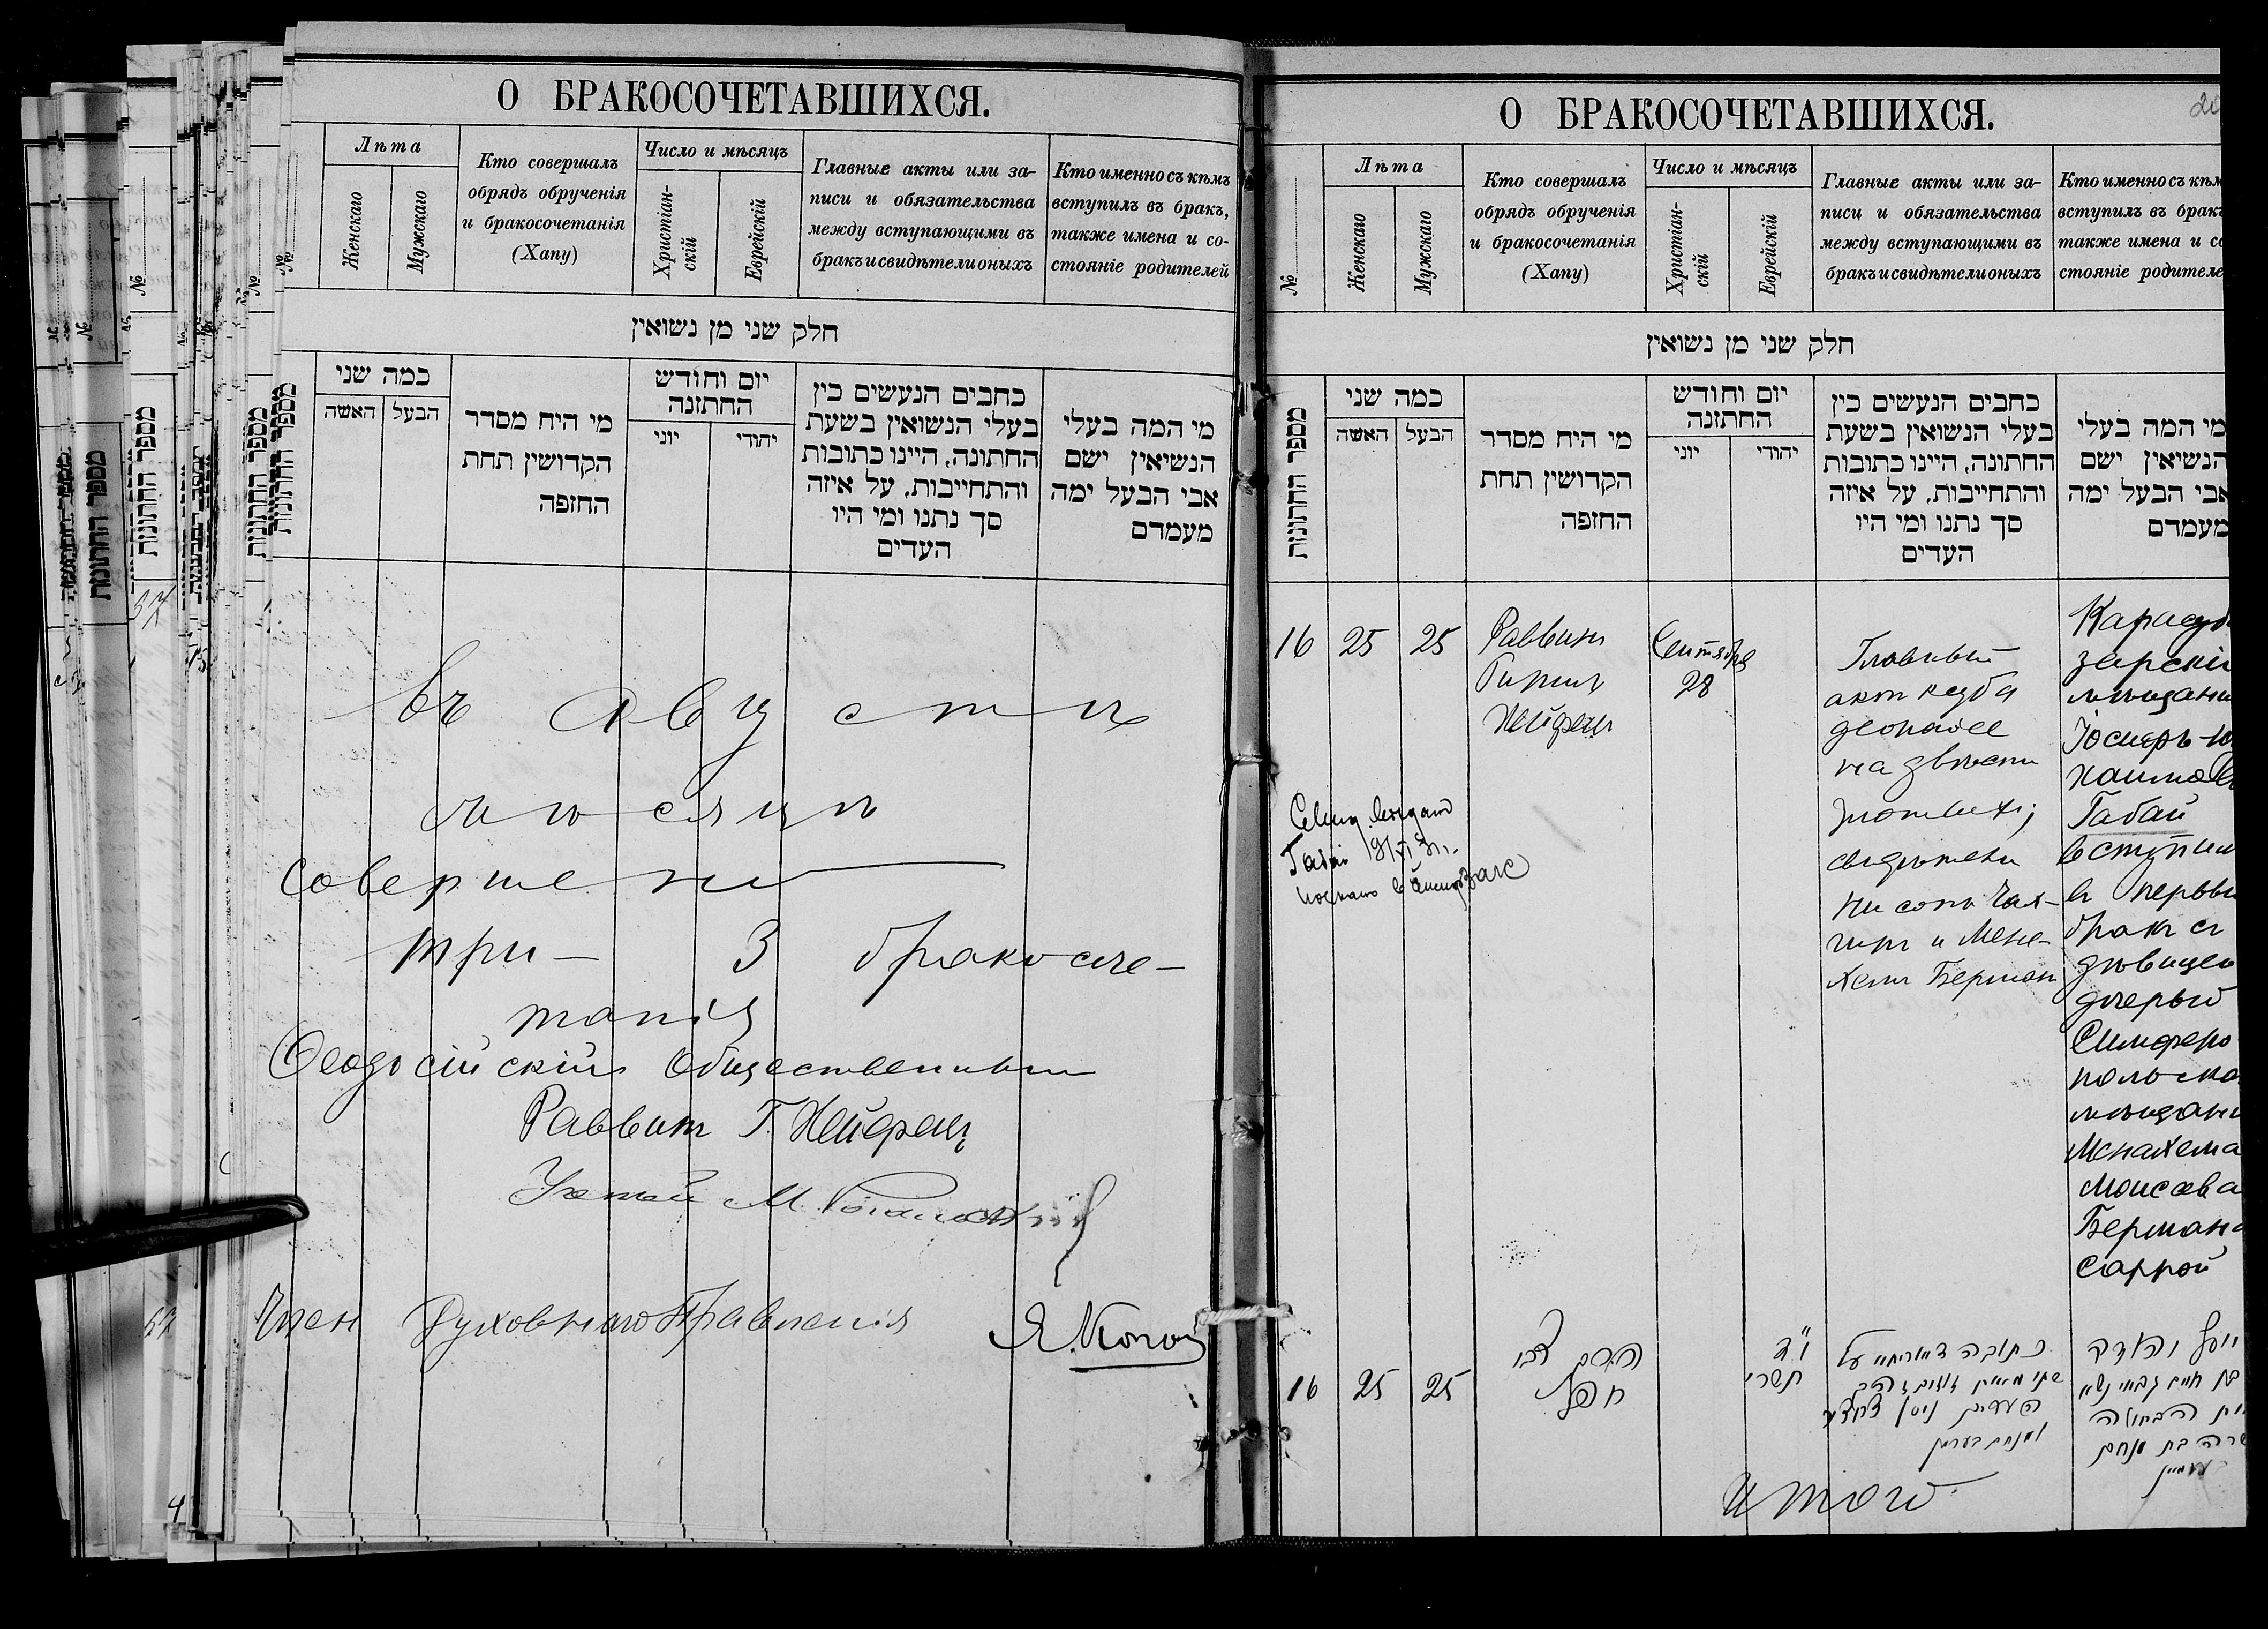 О БРАКОСОЧЕТАВШИХСЯ.
№
Лѣта
Женскаго
Мужскаго
Кто совершалъ
обрядъ обрученія
и бракосочетанія
(Хапу)
Число и мѣсяцъ
Христіан-
скій
Еврейскій
Главные акты или за-
писи и обязательства
между вступающими въ
бракъ и свидѣтели оныхъ
Кто именно съ кѣмъ
вступилъ въ бракъ,
также имена и со-
стояніе родителей
חלק שני מן נשואין
מספר החתונות
כמה שני
האשה
הבעל
מי היח מסדר
הקדושין תחת
החופה
יום וחודש
החתונה
יוני
יהודי
כתבים הנעשים בין
בעלי הנשואין בשעת
החתונה, היינו כתובות
והתחייבות, על איזה
סך נתנו ומי היו
העדים
מי המה בעלי
הנשיאין ישם
אבי הבעל ימה
מעמדם
Въ августѣ
мѣсяцѣ
совершено
три — 3 бракосоче-
танія
Ѳеодосійскій Общественный
Раввинъ Г. Хейфецъ
Ученый М.
Членъ Духовнаго Правленія
О БРАКОСОЧЕТАВШИХСЯ.
20
№
Лѣта
Женскаго
Мужскаго
Кто совершалъ
обрядъ обрученія
и бракосочетанія
(Хапу)
Число и мѣсяцъ
Христіан-
скій
Еврейскій
Главные акты или за-
писи и обязательства
между вступающими въ
бракъ и свидѣтели оныхъ
Кто именно съ кѣм
вступилъ въ брак
также имена и со
стояніе родителе
חלק שני מן נשואין
מספר החתונות
כמה שני
האשה
הבעל
מי היח מסדר
הקדושין תחת
החופה
יום וחודש
החתונה
יוני
יהודי
כתבים הנעשים בין
בעלי הנשואין בשעת
החתונה, היינו כתובות
והתחייבות, על איזה
סך נתנו ומי היו
העדים
מי המה בעלי
הנשיאין ישם
אבי הבעל ימה
מעמדם
16
25
25
Раввинъ
Гиршъ
Хейфецъ
Сентября
28
Главный
актъ кезуба
деорайсе
на двѣсти
злотыхъ;
свидѣтели
Нисонъ Чах-
чиръ и Мена-
хемъ Берманъ
Карасуб
зарскій
мѣщани
Іосифъ-Ю
Хаимов
Габай
вступил
въ первы
бракъ съ
дѣвицею
дочерью
Симферо
польска
мѣщани
Менахема
Моисеева
Бермана
Саррой
Габай
16
25
25
הרב צבי
חפץ
י"ד
תשרי
כתובה דאורייתא על
העדים ניסן
ומנחם בערמן
יוסף יהודה
בן חיים גבאי נשא
את הבתולה
שרה בת מנחם
בערמאן
Итого